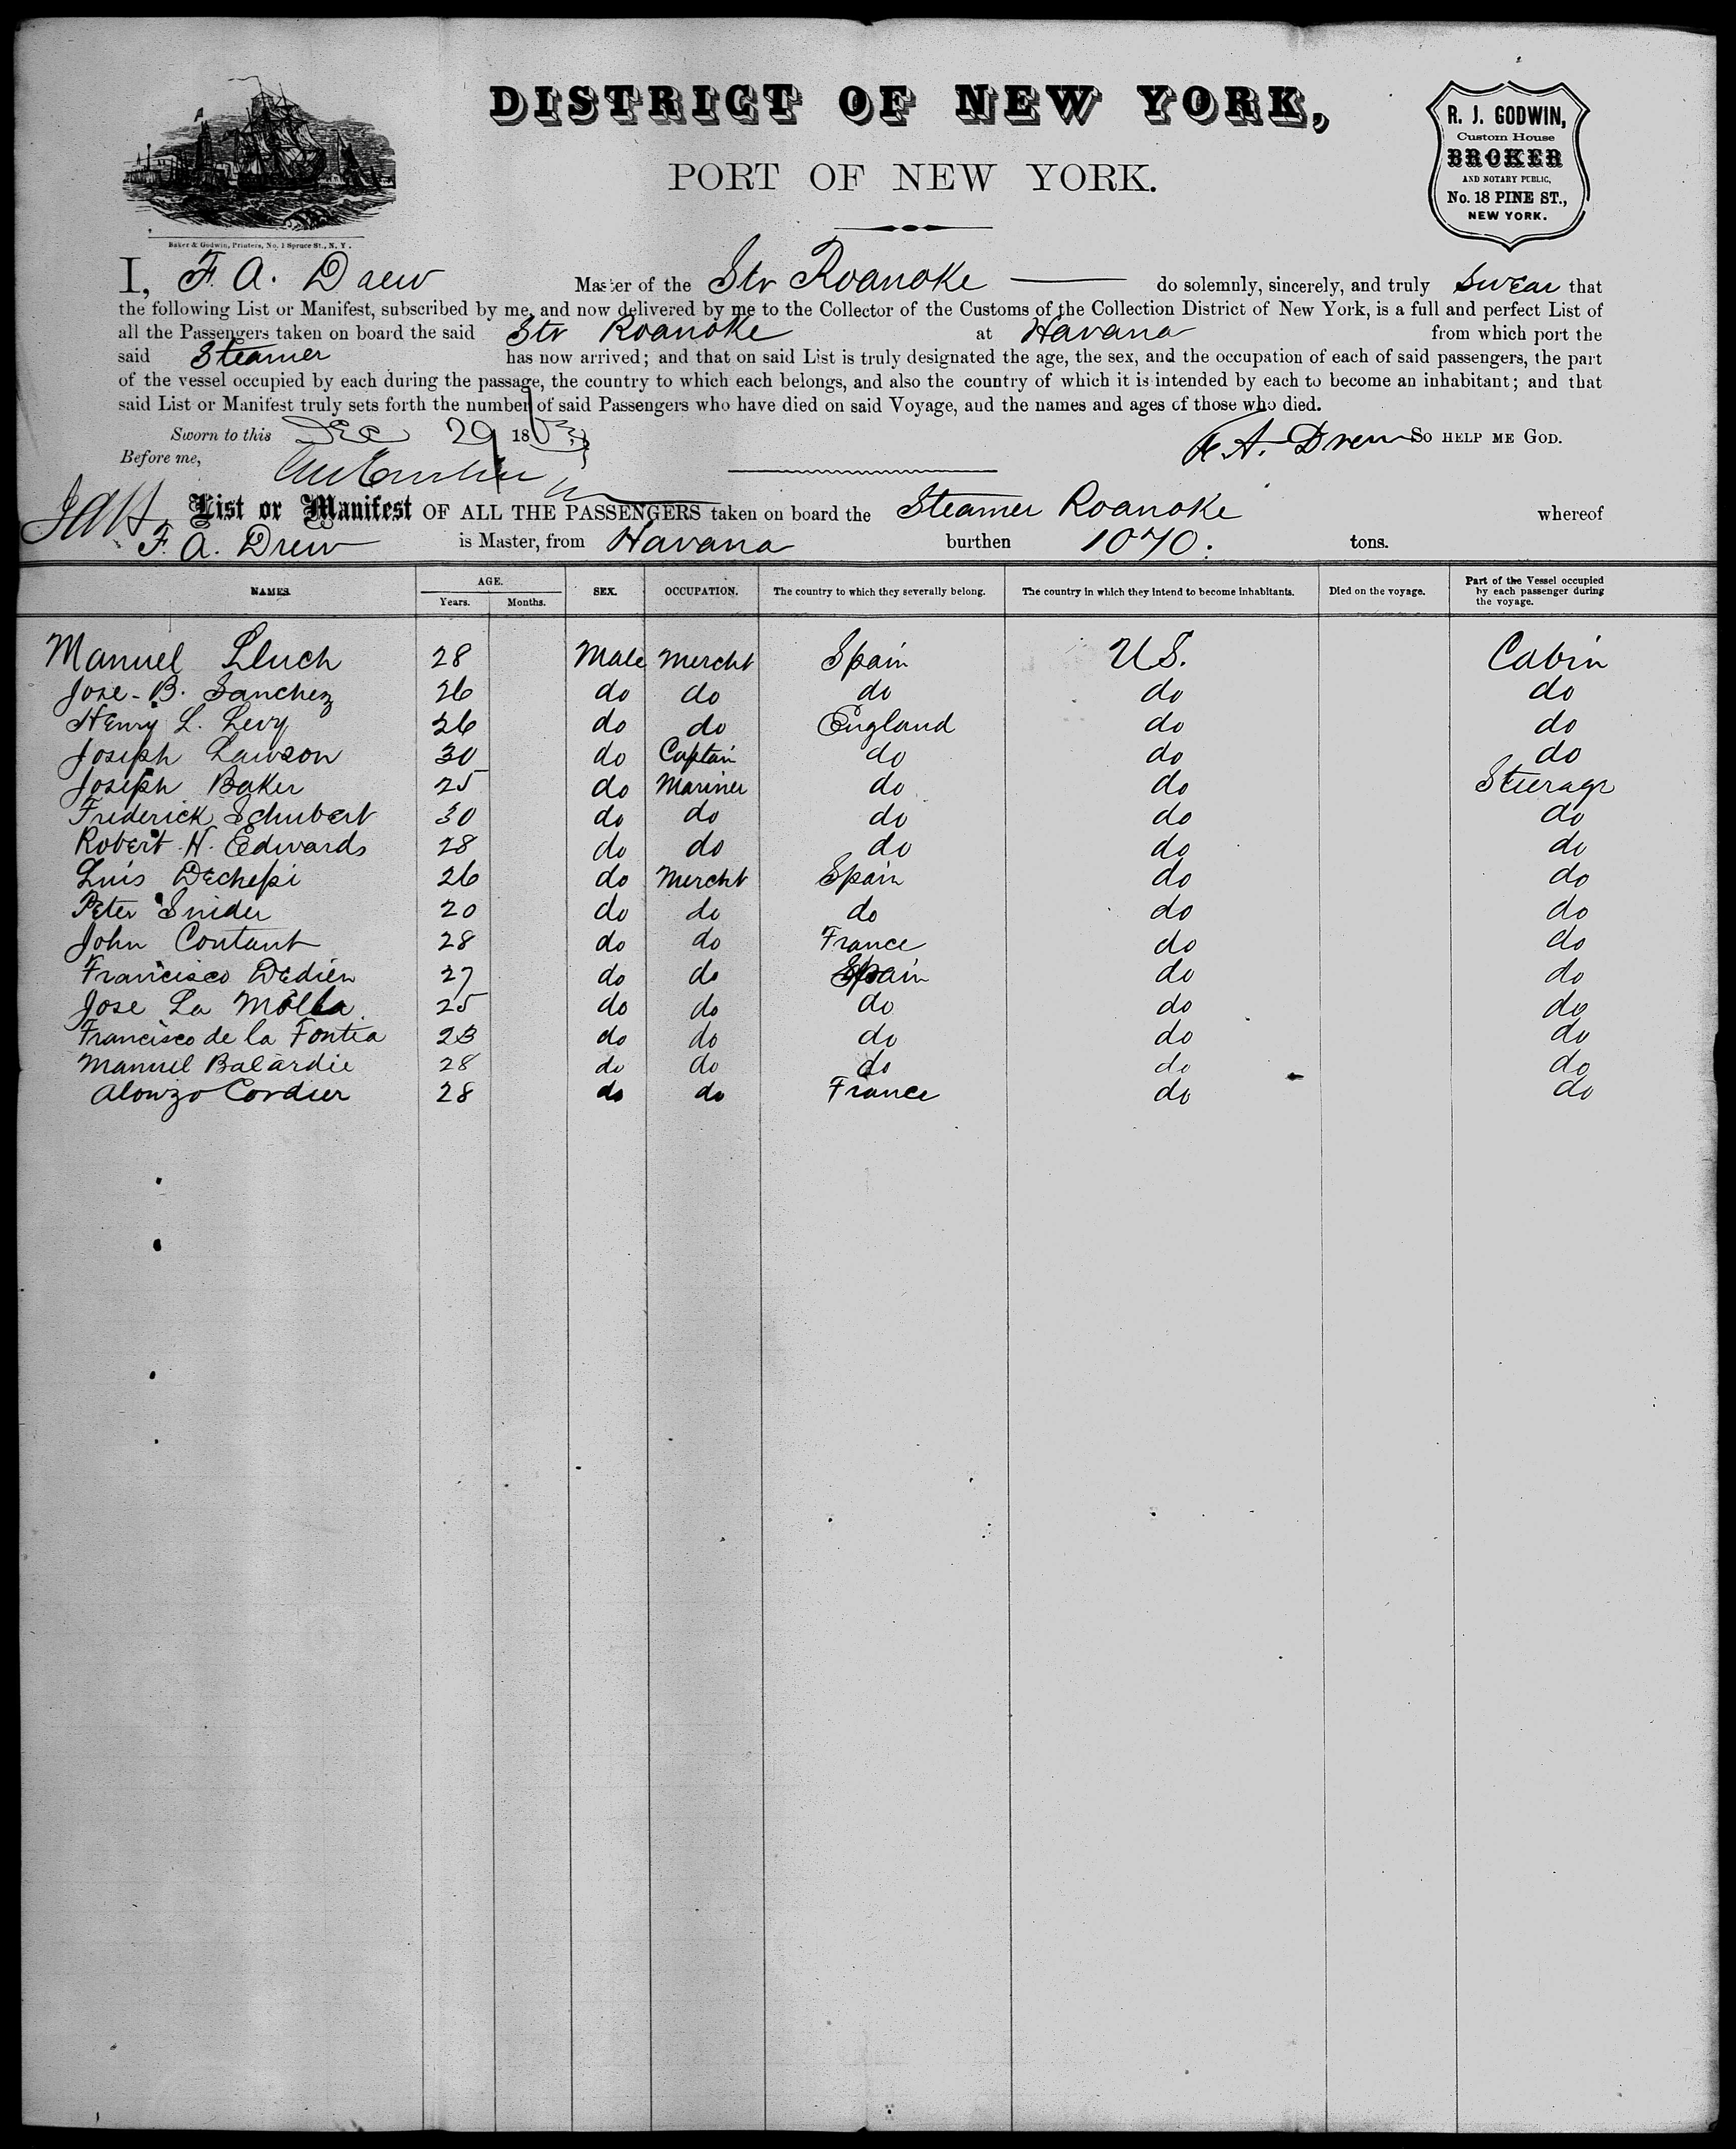 DISTRICT OF NEW YORK,
PORT OF NEW YORK.
R. J. GODWIN,
Custom House
BROKER
AND NOTARY PUBLIC,
No. 18 PINE ST.,
NEW YORK.
Baker & Godwin, Printers, No. 1 Spruce St., N. Y.
I, F. A. Drew Master of the Str Roanoke do solemnly, sincerely, and truly swear that
the following List or Manifest, subscribed by me, and now delivered by me to the Collector of the Customs of the Collection District of New York, is a full and perfect List of
all the Passengers taken on board the said Str Roanoke at Havana from which port the
said Steamer has now arrived; and that on said List is truly designated the age, the sex, and the occupation of each of said passengers, the part
of the vessel occupied by each during the passage, the country to which each belongs, and also the country of which it is intended by each to become an inhabitant; and that
said List or Manifest truly sets forth the number of said Passengers who have died on said Voyage, and the names and ages of those who died.
Sworn to this Dec 29 18 F. A. Drew SO HELP ME GOD.
Before me,
List or Manifest OF ALL THE PASSENGERS taken on board the Steamer Roanoke whereof
F. A. Drew is Master, from Havana burthen 1070. tons.
NAMES. AGE. Years. Months. SEX. OCCUPATION. The country to which they severally belong. The country in which they intend to become inhabitants. Died on the voyage. Part of the Vessel occupied by each passenger during the voyage.
Manuel Lluch 28 Male Mercht Spain U.S. Cabin
Jose B. Sanchez 26 do do do do do
Henry L. Levy 26 do do England do do
Joseph Lawson 30 do Captain do do do
Joseph Baker 25 do Mariner do do Steerage
Frederick Schubert 30 do do do do do
Robert H. Edwards 28 do do do do do
Luis Dechepi 26 do Mercht Spain do do
Peter Snider 20 do do do do do
John Contant 28 do do France do do
Francisco Dedien 27 do do Spain do do
Jose La Molla 25 do do do do do
Francisco de la Fontea 23 do do do do do
Manuel Balardie 28 do do do do do
Alonzo Cordier 28 do do France do do